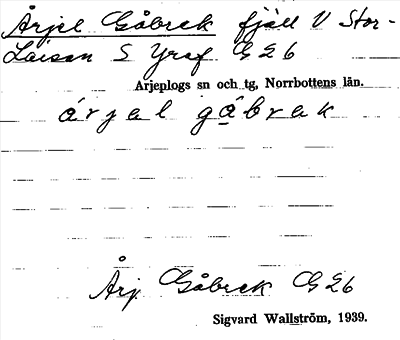 Årjel Gåbrek fjäll V Stor-
Laisan S Yraf G 26
Arjeplogs sn och tg, Norrbottens län.
árjal gåbrak
Årj. Gåbrek G 26
Sigvard Wallström, 1939.